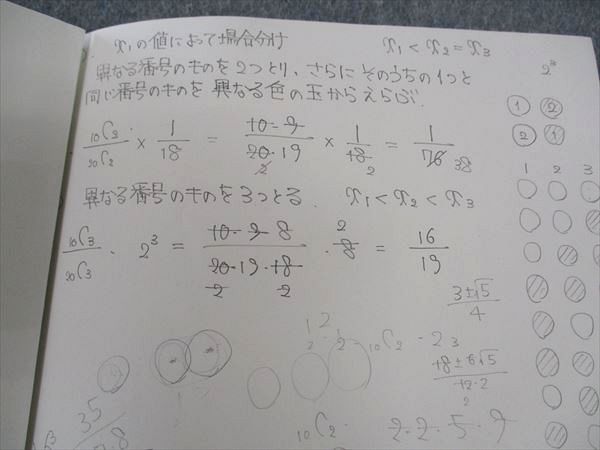 x₁の値によって場合分け x₁ < x₂ = x₃
異なる番号のものを2つとり、さらにそのうちの1つと 2³
同じ番号のものを異なる色の玉からえらぶ.
₁₀C₂/₂₀C₂ × 1/18 = 10·9/20·19 × 1/18 = 1/76 38
2 2
1 2
2 1
異なる番号のものを3つとる. x₁ < x₂ < x₃
1 2 3
₁₀C₃/₂₀C₃ · 2³ = 10·9·8/20·19·18 · 8 = 16/19
2
2 2
3±√5/4
₁₀C₂ - 2 3
18±6√5/12·2
2
35
₁₀C₂· 2·2·5·9